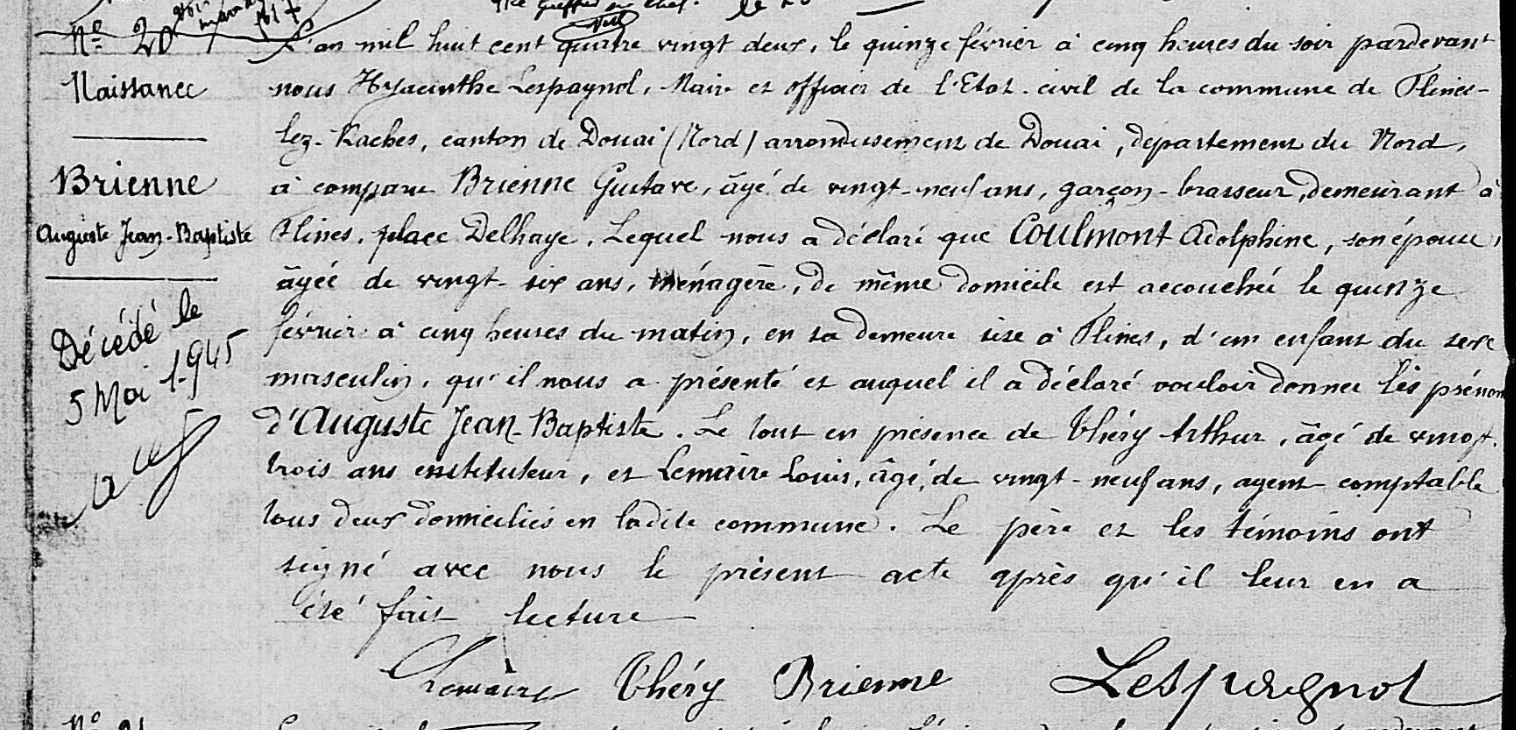 Nº 20
Naissance
Brienne
Auguste Jean-Baptiste
Décédé le
5 Mai 1945
L'an mil huit cent quatre vingt deux, le quinze février à cinq heures du soir pardevant
nous Hyacinthe Lespagnol, Maire et officier de l'Etat-civil de la commune de Flines-
lez-Raches, canton de Douai (Nord) arrondissement de Douai, département du Nord,
a comparu Brienne Gustave, âgé de vingt-neuf ans, garçon-brasseur, demeurant à
Flines, place Delhaye, Lequel nous a déclaré que Coulmont Adolphine, son épouse,
âgée de vingt-six ans, ménagère, de même domicile est accouchée le quinze
février à cinq heures du matin, en sa demeure sise à Flines, d'un enfant du sexe
masculin, qu'il nous a présenté et auquel il a déclaré vouloir donner les prénom
d'Auguste Jean-Baptiste. Le tout en présence de Théry Arthur, âgé de vingt-
trois ans instituteur, et Lemaire Louis, âgé de vingt-neuf ans, agent comptable
tous deux domiciliés en ladite commune. Le père et les témoins ont
signé avec nous le présent acte après qu'il leur en a
été fait lecture
Lemaire Théry Brienne Lespagnol
Nº 21